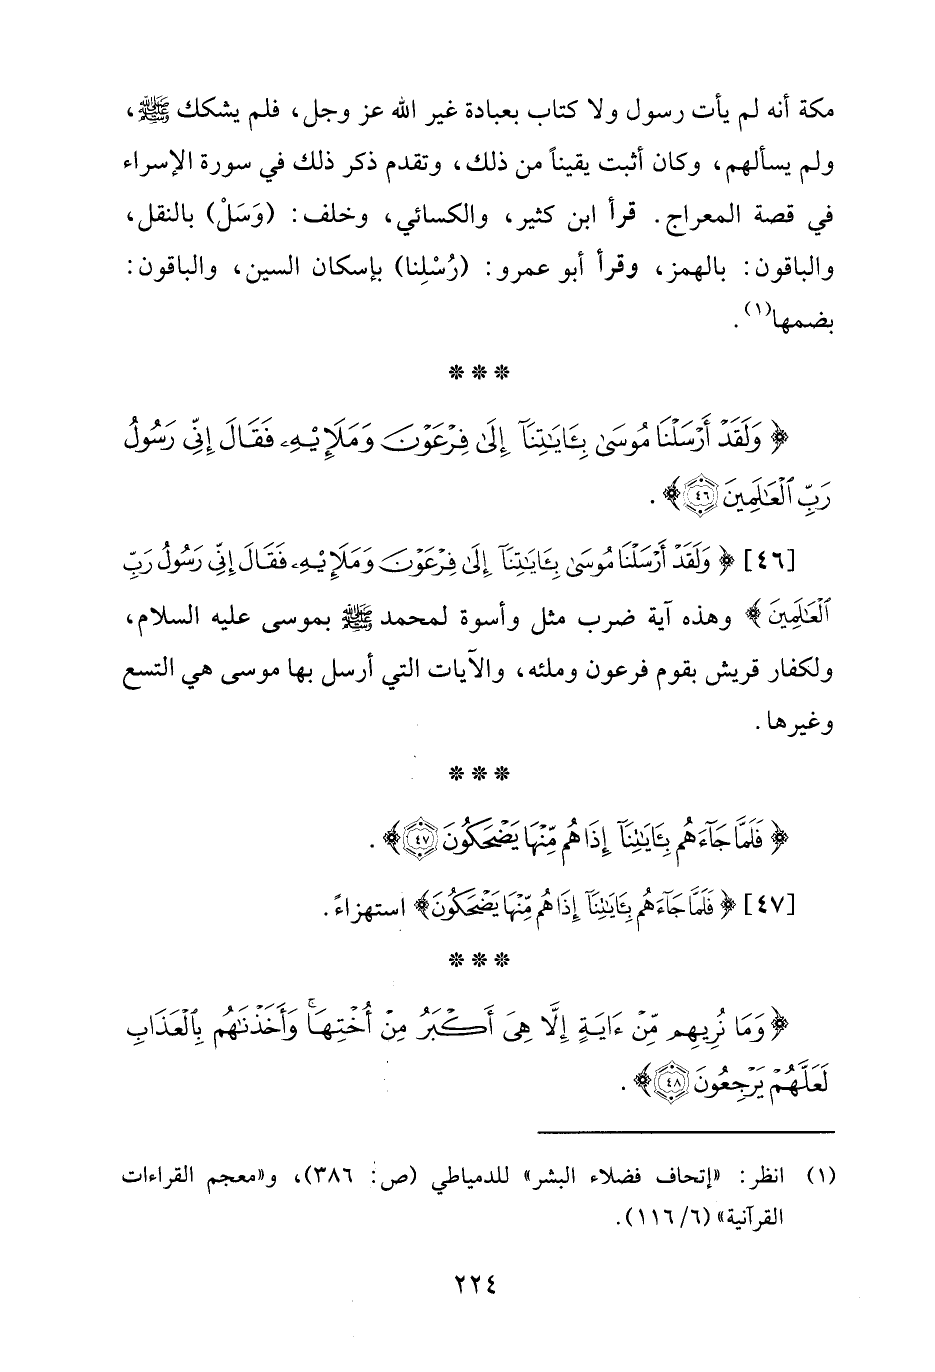 مكة أنه لم يأت رسول ولا كتاب بعبادة غير الله عز وجل، فلم يشكك ﷺ،
ولم يسألهم، وكان أثبت يقيناً من ذلك، وتقدم ذكر ذلك في سورة الإسراء
في قصة المعراج. قرأ ابن كثير، والكسائي، وخلف: (وَسَلْ) بالنقل،
والباقون: بالهمز، وقرأ أبو عمرو: (رُسْلِنا) بإسكان السين، والباقون:
بضمها(١).
* * *
﴿ وَلَقَدْ أَرْسَلْنَا مُوسَىٰ بِـَٔايَـٰتِنَآ إِلَىٰ فِرْعَوْنَ وَمَلَإِيْهِۦ فَقَالَ إِنِّى رَسُولُ
رَبِّ ٱلْعَـٰلَمِينَ ٤٦ ﴾.
[٤٦] ﴿ وَلَقَدْ أَرْسَلْنَا مُوسَىٰ بِـَٔايَـٰتِنَآ إِلَىٰ فِرْعَوْنَ وَمَلَإِيْهِۦ فَقَالَ إِنِّى رَسُولُ رَبِّ
ٱلْعَـٰلَمِينَ ﴾ وهذه آية ضرب مثل وأسوة لمحمد ﷺ بموسى عليه السلام،
ولكفار قريش بقوم فرعون وملئه، والآيات التي أرسل بها موسى هي التسع
وغيرها.
* * *
﴿ فَلَمَّا جَآءَهُم بِـَٔايَـٰتِنَآ إِذَا هُم مِّنْهَا يَضْحَكُونَ ٤٧ ﴾.
[٤٧] ﴿ فَلَمَّا جَآءَهُم بِـَٔايَـٰتِنَآ إِذَا هُم مِّنْهَا يَضْحَكُونَ ﴾ استهزاءً.
* * *
﴿ وَمَا نُرِيهِم مِّنْ ءَايَةٍ إِلَّا هِىَ أَكْبَرُ مِنْ أُخْتِهَا ۖ وَأَخَذْنَـٰهُم بِٱلْعَذَابِ
لَعَلَّهُمْ يَرْجِعُونَ ٤٨ ﴾.
(١) انظر: «إتحاف فضلاء البشر» للدمياطي (ص: ٣٨٦)، و«معجم القراءات
القرآنية» (٦/ ١١٦).
٢٢٤